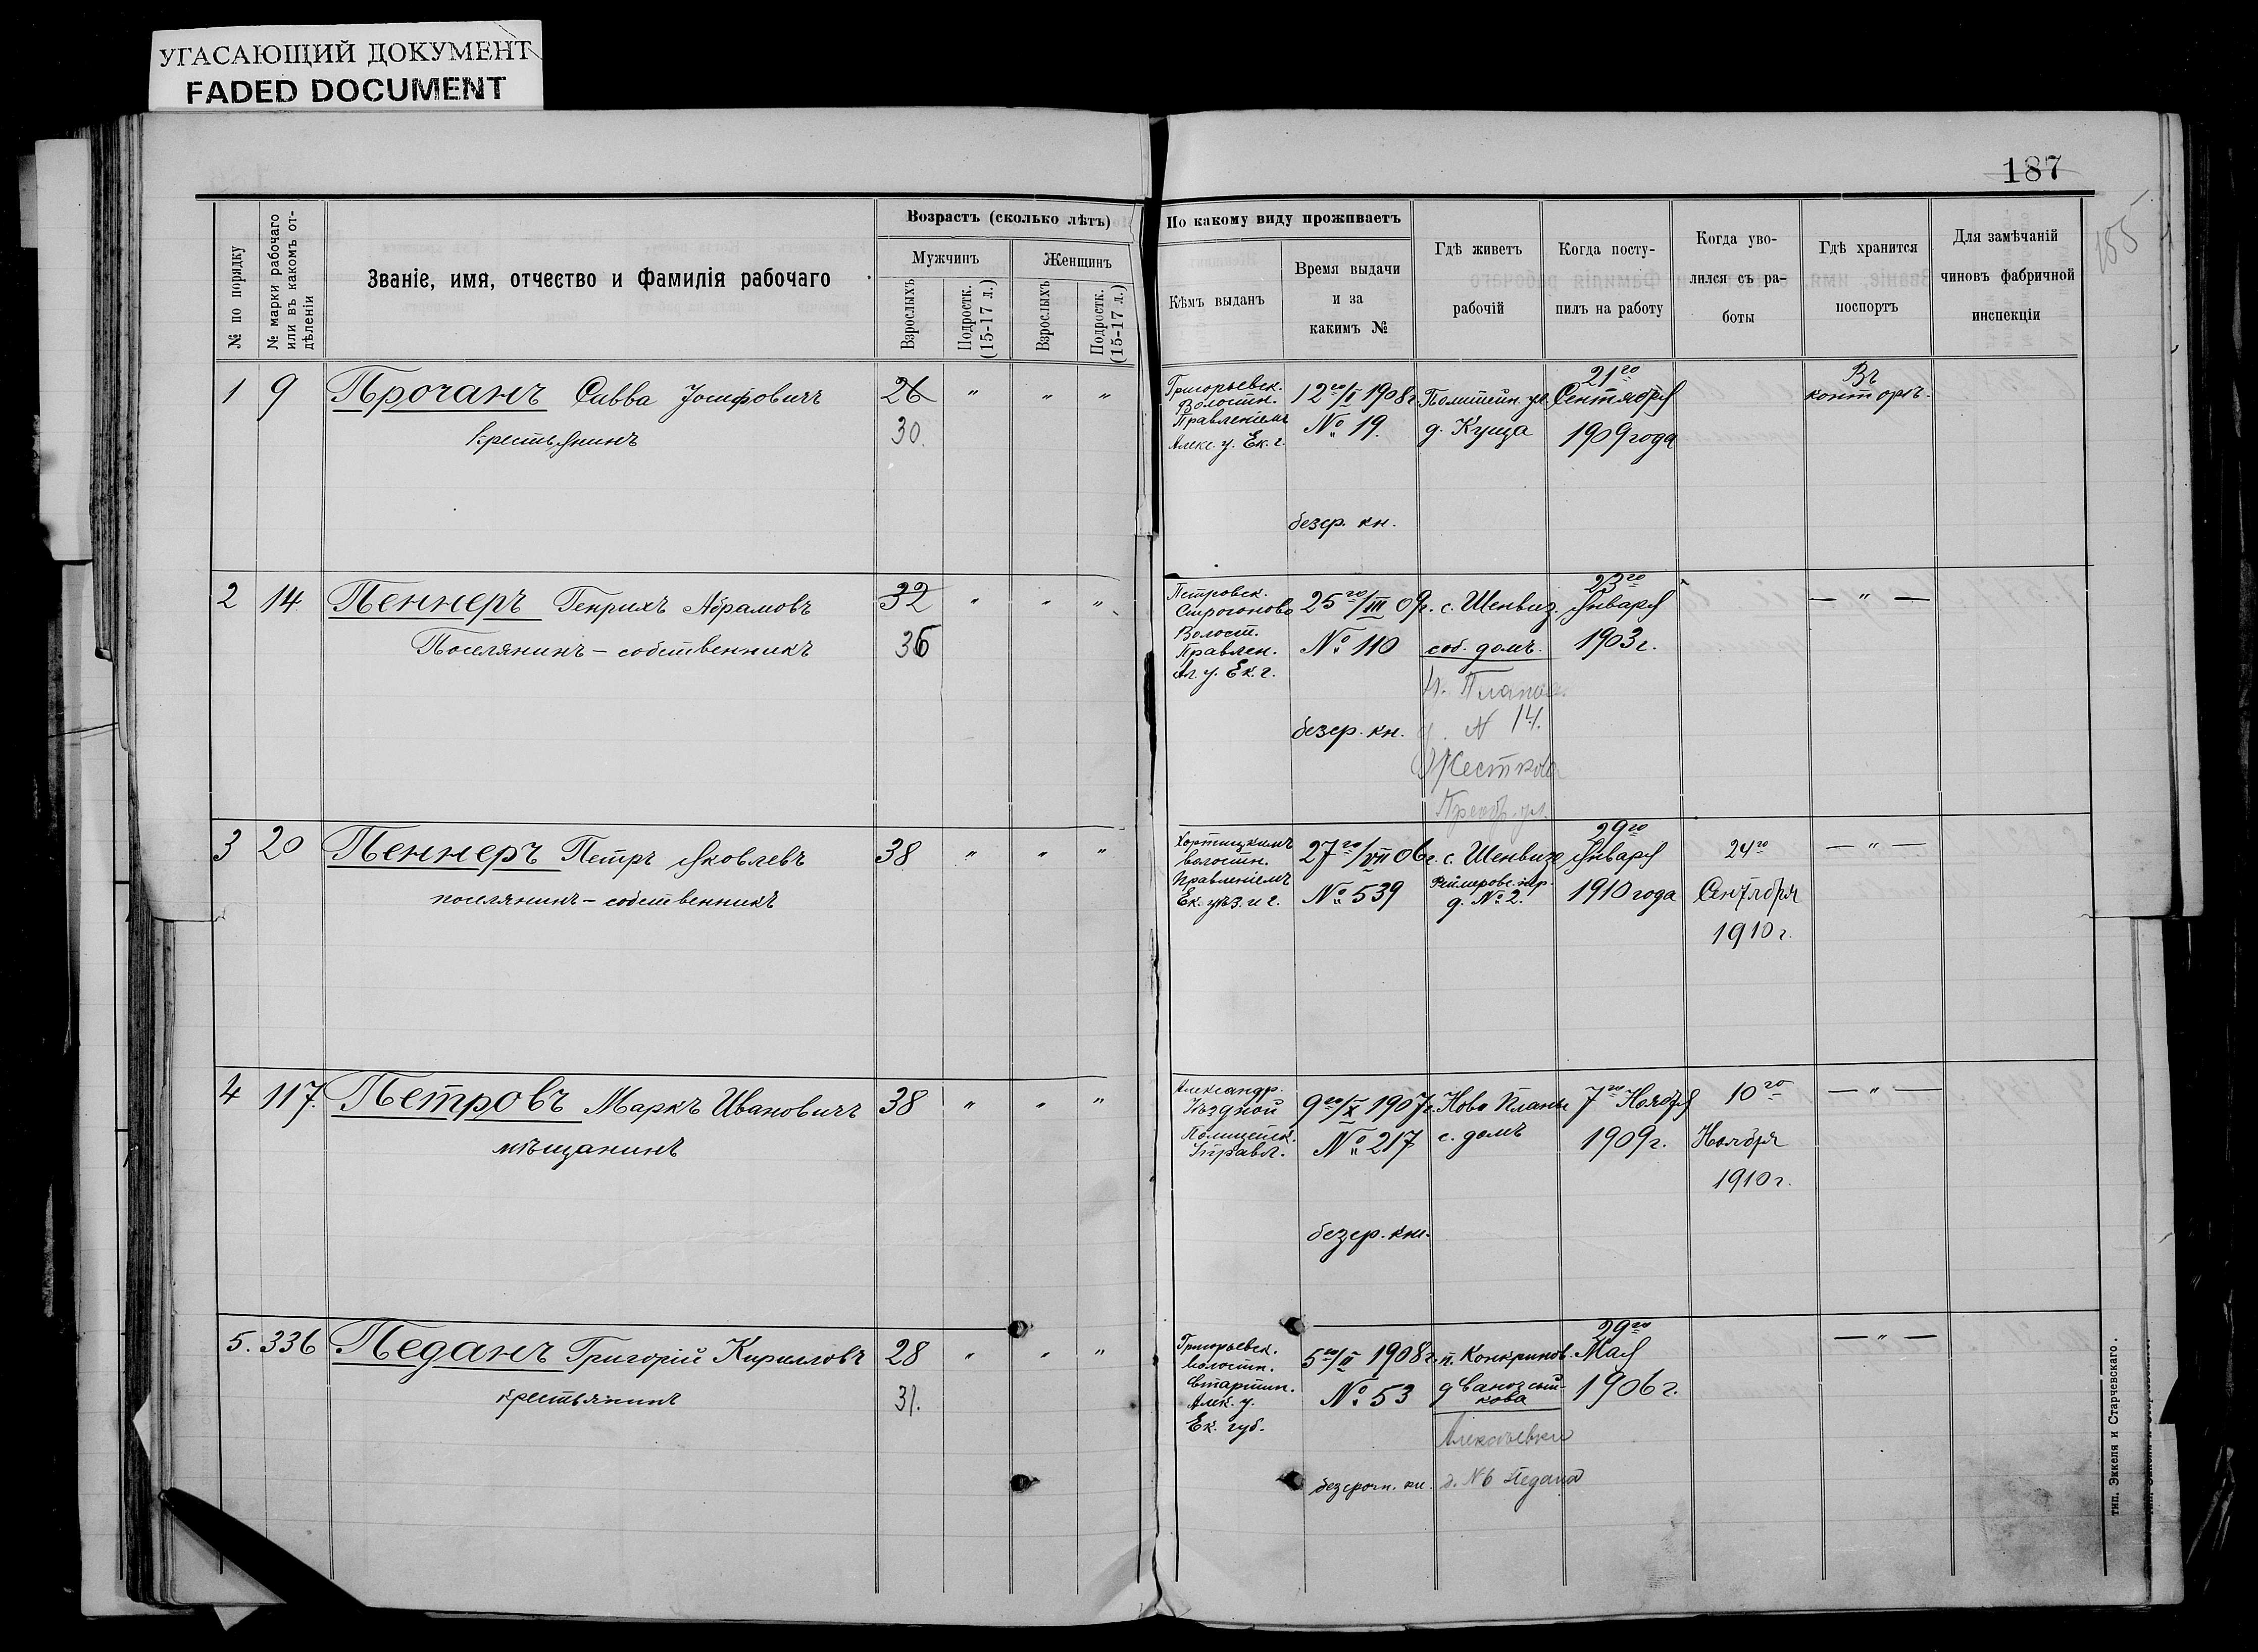 УГАСАЮЩИЙ ДОКУМЕНТ
FADED DOCUMENT
187
155
№ по порядку
№ марки рабочаго
или въ какомъ от-
дѣленіи
Званіе, имя, отчество и фамилія рабочаго
Возрастъ (сколько лѣтъ)
Мужчинъ
Женщинъ
Взрослыхъ
Подростк.
(15-17 л.)
Взрослыхъ
Подростк.
(15-17 л.)
По какому виду проживаетъ
Кѣмъ выданъ
Время выдачи
и за
какимъ №
Гдѣ живетъ
рабочій
Когда посту-
пилъ на работу
Когда уво-
лился съ ра-
боты
Гдѣ хранится
поспортъ
Для замѣчаній
чиновъ фабричной
инспекціи
1 9 Прочанъ Савва Іосифовичъ 26 " " "
крестьянинъ 30.
Григорьевск.
Волостн.
Правленіемъ
Алекс. у. Ек. г.
12го/II 1908г.
№ 19.
безср. кн.
д. Куца
21го
Сентября
1909 года
Въ
конторѣ.
2 14 Пеннеръ Генрихъ Абрамовъ 32 " " "
Поселянинъ - собственникъ 36
Петровск.
Волост.
Правлен.
Ал. у. Ек. г.
25го/III 09г.
№ 110
безср. кн.
с. Шенвиз.
соб. домъ.
N 14.
23го
Января
1903 г.
— " —
3 20 Пеннеръ Петръ Яковлевъ 38 " " "
поселянинъ - собственникъ
Хортицкимъ
волостн.
Правленіемъ
Ек. уѣз. и г.
27го/VII 06г.
№ 539
с. Шенвизе
д. № 2.
29го
Января
1910 года
24го
Сентября
1910 г.
— " —
4 117. Петровъ Маркъ Ивановичъ 38 " " "
мѣщанинъ
Александр.
Уѣздной
Полицейск.
Управл.
9го/X 1907г.
№ 217
безср. кн.
Ново Планы
с. домъ
7го Ноября
1909 г.
10го
Ноября
1910 г.
— " —
5. 336 Педанъ Григорій Кирилловъ 28 " " "
крестьянинъ 31.
Григорьевск.
волостн.
старшин.
Алек. у.
Ек. губ.
5го/II 1908г.
№ 53
безсрочн. кн.
д. N 6 Педана
29го
Мая
1906 г.
— " —
тип. Эккеля и Старчевскаго.